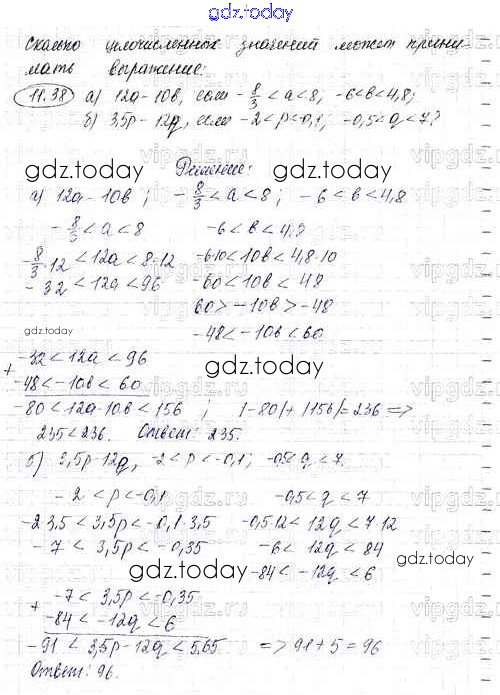 gdz.today
Сколько целочисленных значений может прини-
мать выражение:
11.38 а) 12a-10b, если -8/3<a<8; -6<b<4,8;
б) 3,5p-12q, если -2<p<-0,1; -0,5<q<7?
gdz.today gdz.today
Решение:
а) 12a-10b; -8/3<a<8; -6<b<4,8
-8/3<a<8 -6<b<4,8
-8/3·12<12a<8·12 -6·10<10b<4,8·10
-32<12a<96 -60<10b<48
60>-10b>-48
gdz.today -48<-10b<60
-32<12a<96 gdz.today
+
-48<-10b<60
-80<12a-10b<156; |-80|+|156|=236 =>
235<236. Ответ: 235.
б) 3,5p-12q, -2<p<-0,1; -0,5<q<7.
-2<p<-0,1 -0,5<q<7
-2·3,5<3,5p<-0,1·3,5 -0,5·12<12q<7·12
-7<3,5p<-0,35 -6<12q<84
gdz.today -84<-12q<6 gdz.today
-7<3,5p<-0,35
+
-84<-12q<6
-91<3,5p-12q<5,65 => 91+5=96
Ответ: 96.
gdz.today